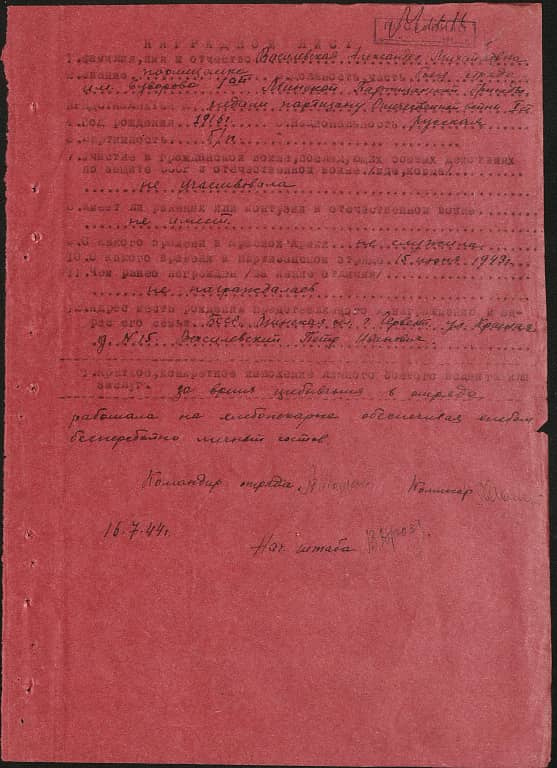 НАГРАДНОЙ ЛИСТ
1. Фамилия, имя и отчество Василевская Александра Михайловна
2. Звание партизанка 3. Должность, часть отряда
им. Суворова 1ой Минской Партизанской бригады
медали партизану Отечественной войны
4. Год рождения 1916г. 5. Национальность русская
6. Партийность б/п
7. Участие в гражданской войне, последующих боевых действиях
по защите СССР и отечественной войне /где, когда/
не участвовала
8. Имеет ли ранения или контузии в отечественной войне
не имеет
9. С какого времени в Красной Армии не служила
10. С какого времени в партизанском отряде 15 июня 1943г.
11. Чем ранее награжден /за какие отличия/
не награждалась
12. Адрес места рождения представляемого к награждению и ад-
рес его семьи БССР, Минская обл. г. Червень ул.
д. №15. Василевский Петр Иванович
1. Краткое, конкретное изложение личного боевого подвига или
заслуг. За время пребывания в отряде
работала на хлебопекарне обеспечивая хлебом
бесперебойно личный состав.
Командир отряда Комиссар
16.7.44г.
Нач. штаба